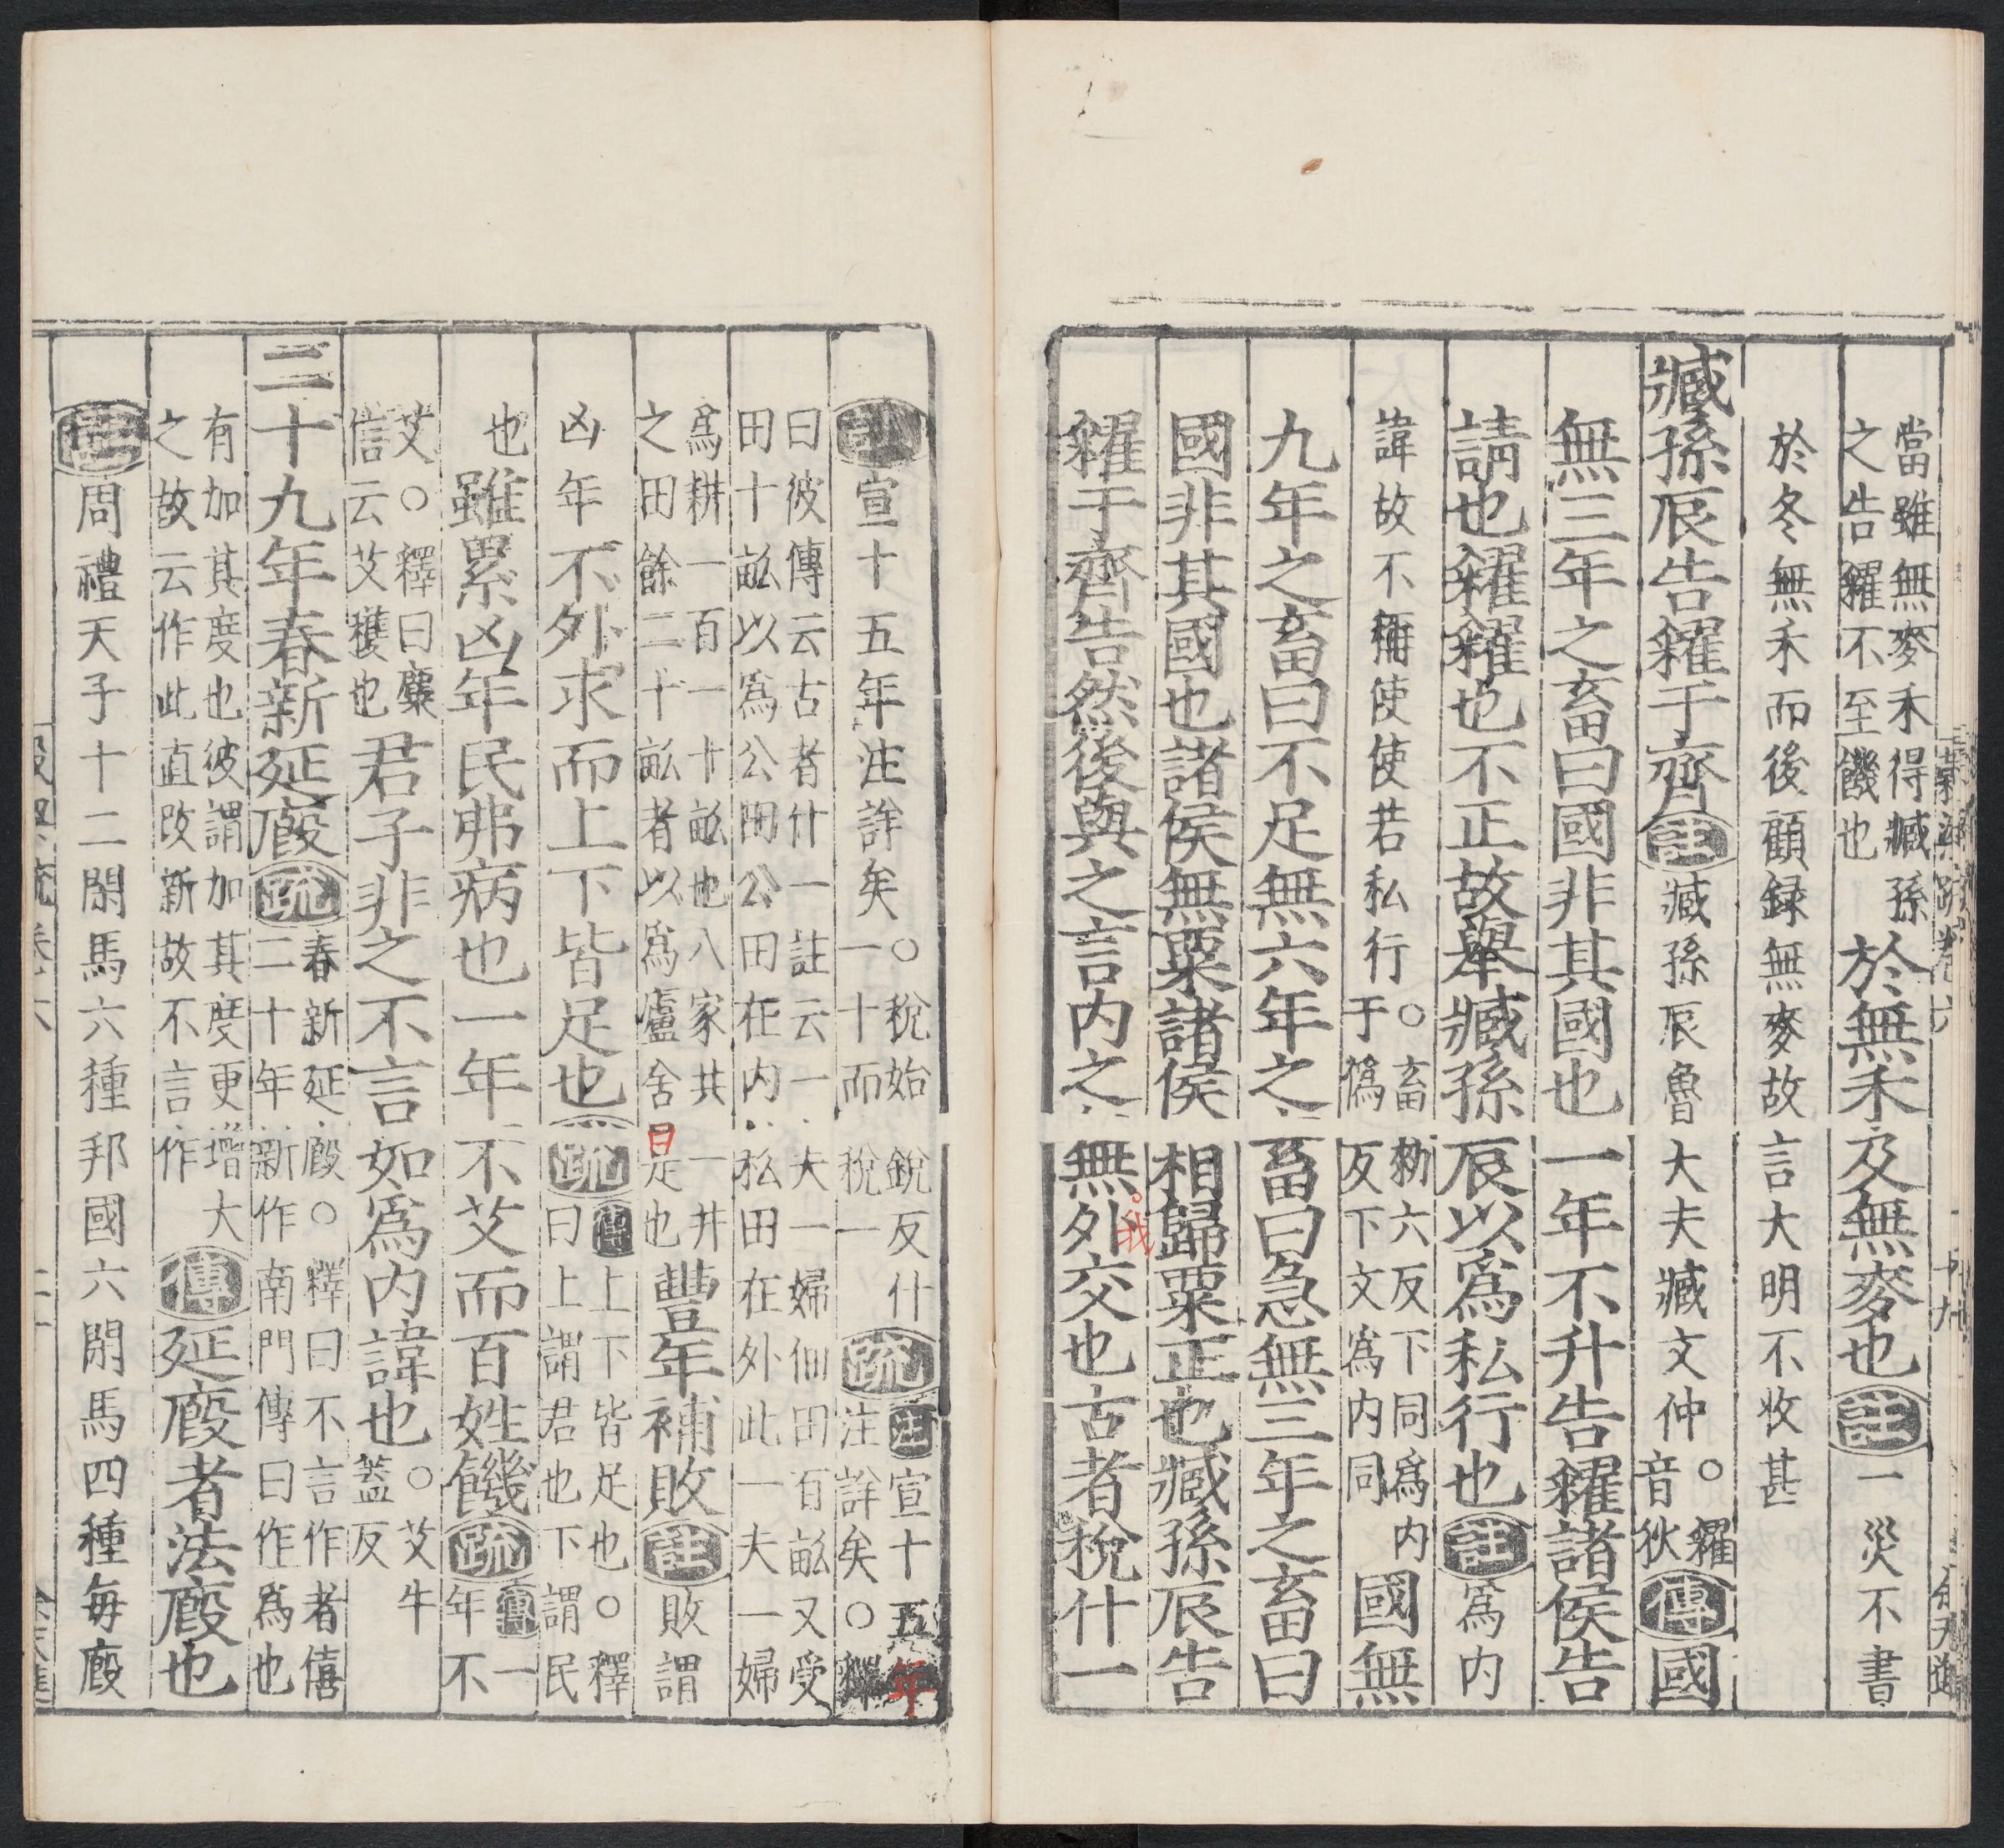 當雖無麥禾得臧孫
之告糴不至饑也
於無禾及無麥也註一災不書
於冬無禾而後顧録無麥故言大明不收甚
臧孫辰告糴于齊註臧孫辰魯大夫臧文仲○糴
音狄傳國
無三年之畜曰國非其國也一年不升告糴諸侯告
請也糴糴也不正故舉臧孫辰以為私行也註為内
諱故不稱使使若私行○畜勑六反下同為内
于僞反下文為内同國無
九年之畜曰不足無六年之畜曰急無三年之畜曰
國非其國也諸侯無粟諸侯相歸粟正也臧孫辰告
糴于齊告然後與之言内之無外交也古者稅什一
我
註宣十五年注詳矣○稅始銳反什
一十而稅一疏注宣十五年
注詳矣○釋
曰彼傳云古者什一註云一夫一婦佃田百畝又受
田十畝以為公田公田在内私田在外此一夫一婦
為耕一百一十畝也八家共一井
之田餘二十畝者以為廬舍是也豐年補敗註敗謂
日
凶年不外求而上下皆足也疏傳上下皆足也○釋
曰上謂君也下謂民
也雖累凶年民弗病也一年不艾而百姓饑疏傳一
年不
艾○釋曰麋
信云艾穫也君子非之不言如為内諱也○艾牛
蓋反
二十九年春新延廄疏春新延廄○釋曰不言作者僖
二十年新作南門傳曰作為也
有加其度也彼謂加其度更增大
之故云作此直改新故不言作傳延廄者法廄也
註周禮天子十二閑馬六種邦國六閑馬四種每廄